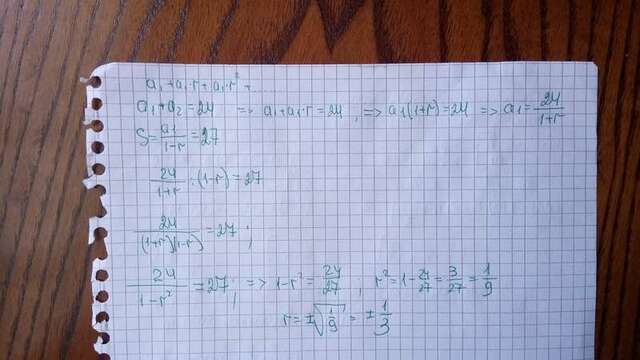 a₁ + a₁r + a₁r² + ...
a₁ + a₂ = 24 => a₁ + a₁r = 24 ; => a₁(1+r) = 24 => a₁ = 24/(1+r)
S = a₁/(1-r) = 27
24/(1+r) : (1-r) = 27
24/((1+r)(1-r)) = 27 ;
24/(1-r²) = 27 ; => 1-r² = 24/27 ; r² = 1 - 24/27 = 3/27 = 1/9
r = ±√(1/9) = ±1/3